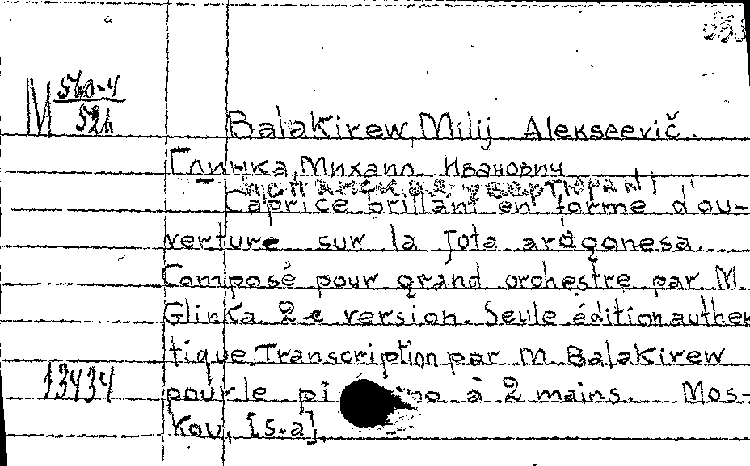 M 560-4
52h
Balakirew, Milij Alekseevič.
Глинка, Михаил Иванович
[Испанская увертюра №1]
Caprice brillant en forme d'ou-
verture sur la jota aragonesa.
Composé pour grand orchestre par M.
Glinka 2-e version. Seule édition authen
tique. Transcription par M. Balakirew
13434
pour le pi no à 2 mains. Mos-
kou, [s.a].